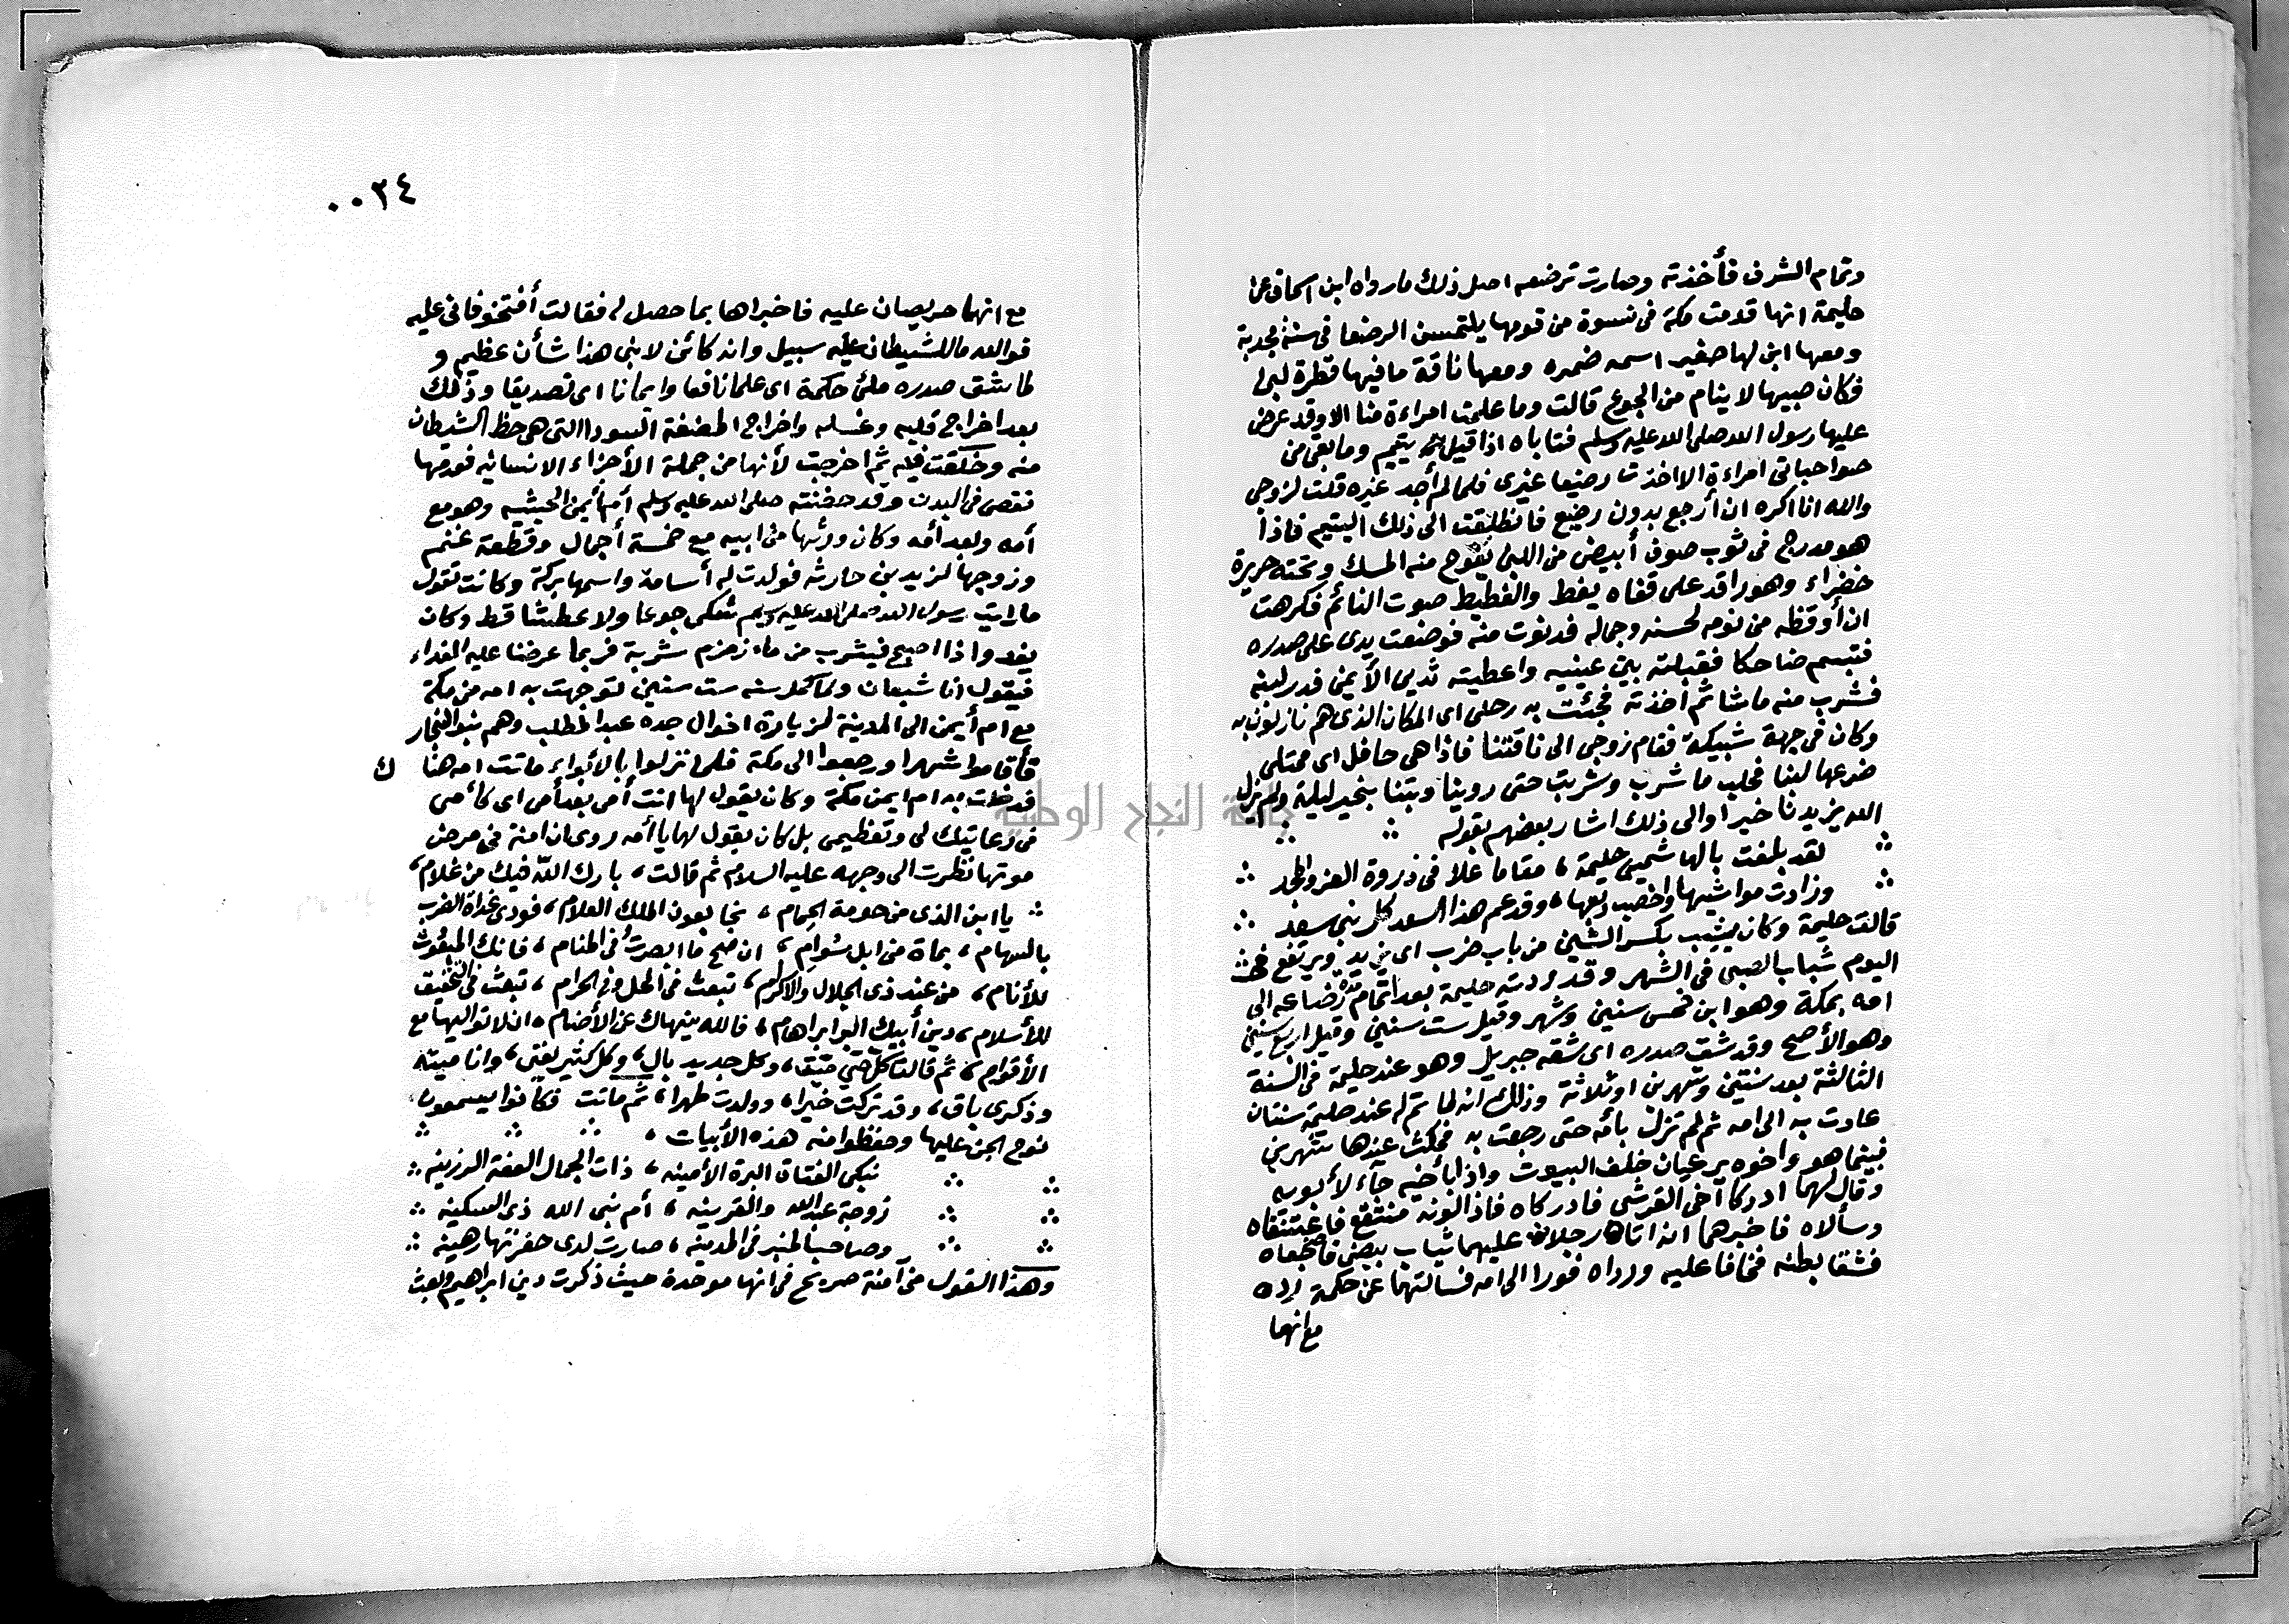 وتمام الشرف فأخذته وصارت ترضعه اصل ذلك ما رواه ابن اسحاق عن
حليمة انها قدمت مكة فى نسوة من قومها يلتمسن الرضعا فى سنة مجدبة
ومعها ابن لها صغير اسمه ضمره ومعها ناقة ما فيها قطرة لبن
فكان صبيها لا ينام من الجوع قالت وما علمت امراءة منا الا وقد عرض
عليها رسول الله صلى الله عليه وسلم فتاباه اذا قيل يتيم وما بقى من
صواحباتى امراءة الا اخذت رضيعا غيرى فلما لم أجد غيره قلت لزوجى
والله انا اكره ان أرجع بدون رضيع فانطلقت الى ذلك اليتيم فاذا
هو مدرج فى ثوب صوف أبيض من اللبن يفوح منه المسك وتحته حريرة
خضراء وهو راقد على قفاه يغط والغطيط صوت النائم فكرهت
ان أوقظه من نومه لحسنه وجماله فدنوت منه فوضعت يدى على صدره
فتبسم ضاحكا فقبلته بين عينيه واعطيته ثديى الأيمن فدر لبنه
فشرب منه ماشا ثم أخذته فجئت به رحلى اى المكان الذى هم نازلون به
وكان فى جهة شبيكة فقام زوجى الى ناقتنا فاذا هى حافل اى ممتلى
ضرعها لبنا فحلب ما شرب وشربت حتى روينا وبتنا بخير ليلة ولم يزل
الله يزيدنا خيرا والى ذلك اشار بعضهم بقوله
لقد بلغت بالهاشمى حليمة ، مقاما علا فى ذروة العز والمجد
وزادت مواشيها واخصب ربعها ، وقد عم هذا السعد كل بنى سعد
قالت حليمة وكان يشب بكسر الشين من باب ضرب اى يزيد ويرتفع فى
اليوم شباب الصبى فى الشهر وقد ردته حليمة بعد اتمام مدة رضاعه الى
امه بمكة وهو ابن خمس سنين وشهر وقيل ست سنين وقيل اربع سنين
وهو الأصح وقد شق صدره اى شقه جبريل وهو عند حليمة فى السنة
الثالثة بعد سنتين وشهرين او ثلاثة وذلك انه لما تم له عند حليمة سنتان
عادت به الى امه ثم لم تزل بأمه حتى رجعت به فمكث عندها شهرين
فبينما هو واخوه يرعيان خلف البيوت واذا بأخيه جآء لأبويه
وقال لهما ادركا أخى القرشى فادركاه فاذا لونه منتقع فاعتنقاه
وسألاه فاخبرهما انه اتاه رجلان عليهما ثياب بيض فاضجعاه
فشقا بطنه فخافا عليه ورداه فورا الى امه فسالتهما عن حكمة رده
مع انهما
٠٠٢٤
مع انهما حريصان عليه فاخبراها بما حصل له فقالت أفتخوفانى عليه
فوالله ما للشيطان عليه سبيل وانه كائن لابنى هذا شأن عظيم و
لما شق صدره ملئ حكمة اى علما نافعا وايمانا اى تصديقا وذلك
بعد اخراج قلبه وغسله واخراج المضغة السودا التى هى حظ الشيطان
منه وخلقت فيه ثم اخرجت لأنها من جملة الأجزاء الانسانيه فعدمها
نقص فى البدن وقد حضنته صلى الله عليه وسلم أم أيمن الحبشيه وهو مع
أمه وبعد أمه وكان ورثها من ابيه مع خمسة أجمال وقطعة غنم
وزوجها لزيد بن حارثه فولدت له أسامة واسمها بركة وكانت تقول
ما رايت رسول الله صلى الله عليه وسلم شكى جوعا ولا عطشا قط وكان
يغدوا اذا اصبح فيشرب من ماء زمزم شربة فربما عرضنا عليه الغداء
فيقول انا شبعان ولما كمل سنه ست سنين توجهت به امه من مكة
مع ام أيمن الى المدينة لزيارة اخوال جده عبد المطلب وهم بنو النجار
فأقاموا شهرا ورجعوا الى مكة فلما نزلوا بالأبواء ماتت امه هنا ك
فدخلت به ام ايمن مكة وكان يقول لها انت أمى بعد أمى اى كأمى
فى رعايتك لى وتعظيمى بل كان يقول لها يا أمه روى ان امنة فى مرض
موتها نظرت الى وجهه عليه السلام ثم قالت ، بارك الله فيك من غلام ،
يا ابن الذى من حومة الحمام ، نجا بعون الملك العلام ، فودى غداة الضرب
بالسهام ، بماة من ابل سوام ، ان صح ما ابصرت فى المنام ، فانك المبعوث
للأنام ، من عند ذى الجلال والاكرام ، تبعث فى الحل وفى الحرام ، تبعث فى التحقيق
للأسلام ، دين أبيك البر ابراهام ، فالله ينهاك عن الأصنام ، ان لا تواليها مع
الأقوام ، ثم قالت كل حى ميت ، وكل جديد بال ، وكل كثير يفنى ، وانا ميتة
وذكرى باق ، وقد تركت خيرا ، وولدت طهرا ، ثم ماتت فكانوا يسمعون
نوح الجن عليها وحفظوا منه هذه الأبيات ،
نبكى الفتاة البرة الأمينه ، ذات الجمال العفة الرزينه
زوجة عبد الله والقرينه ، أم نبى الله ذى السكينه
وصاحب المنبر فى المدينه ، صارت لدى حفرتها رهينه
وهذا القول من آمنة صريح فى انها موحدة حيث ذكرت دين ابراهيم وبعث
جامعة النجاح الوطنية